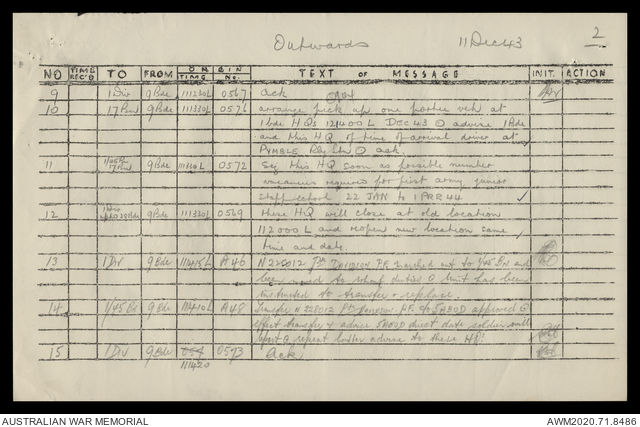 Outwards 11 Dec 43 2
NO TIME REC'D TO FROM OR TIME GIN No. TEXT OF MESSAGE INIT. ACTION
9 1 Div 9 Bde 111230L 0567 ack
10 17 Bn 9 Bde 111330L 0576 arrange pick up one veh at
1 Bde HQs 121400L DEC 43 O advise 1 Bde
and this HQ of time of arrival driver at
PYMBLE Rly Stn O ack.
11 17 Bn 9 Bde 111300L 0572 Say this HQ soon as possible number
vacancies required for first army junior
staff school 22 JAN to 1 APR 44
12 1 Div 28 Bde 9 Bde 111330L 0569 These HQ will close at old location
112000L and reopen new location same
time and date.
13 1 Div 9 Bde 111415L A46 N228012 Pte DAVIDSON P.R. marched out to 1/45 Bn and
been to duties O Unit has been
instructed to transfer + replace.
14 1/45 Bn 9 Bde 111410L A48 Transfer N228012 Pte P.R. to approved O
effect transfer & advise direct date soldier will
report O repeat advice to these HQ.
15 1 Div 9 Bde 0573 Ack
111420
AUSTRALIAN WAR MEMORIAL AWM2020.71.8486